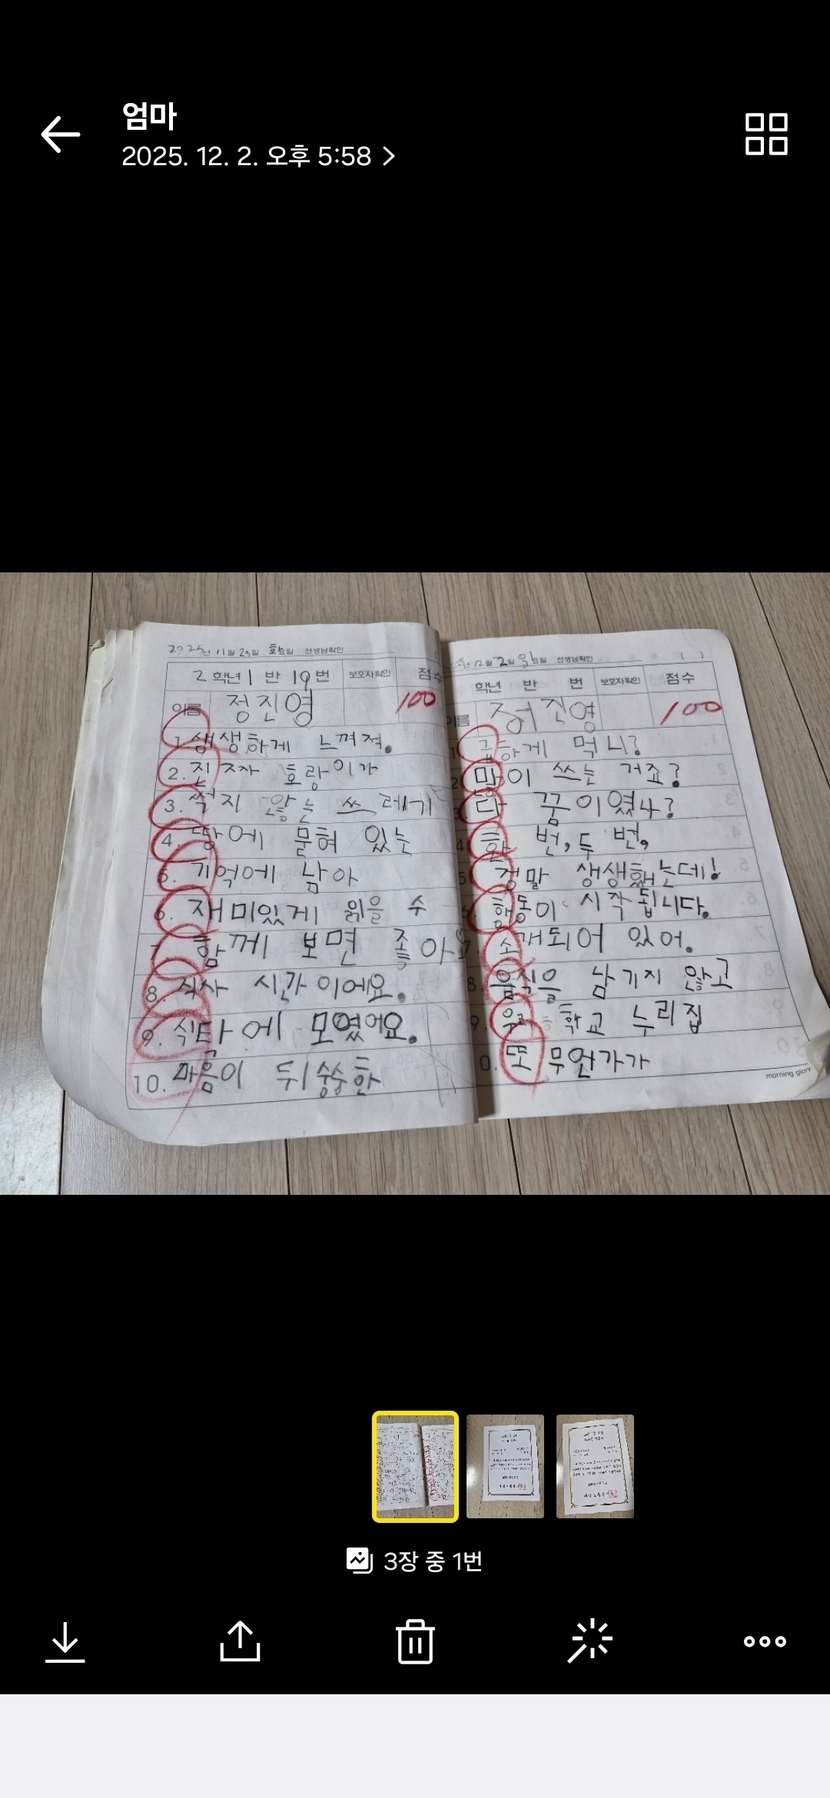 엄마
2025. 12. 2. 오후 5:58
2025년 11월 25일 화요일 선생님확인
2 학년 1 반 19 번 보호자확인 점수
이름 정진영 100
1. 생생하게 느껴져.
2. 진짜 호랑이가
3. 썩지 않는 쓰레기
4. 땅에 묻혀 있는
5. 기억에 남아
6. 재미있게 읽을 수
7. 함께 보면 좋아
8. 식사 시간이에요.
9. 식탁에 모였어요.
10. 마음이 뒤숭숭한
12월 2일 요일 선생님확인
학년 반 번 보호자확인 점수
이름 정진영 100
급하게 먹니?
많이 쓰는 거죠?
다 꿈이였나?
한 번, 두 번,
정말 생생했는데!
행동이 시작됩니다.
소개되어 있어.
8. 음식을 남기지 않고
9. 우리 학교 누리집
0. 또 무언가가
morning glory
3장 중 1번